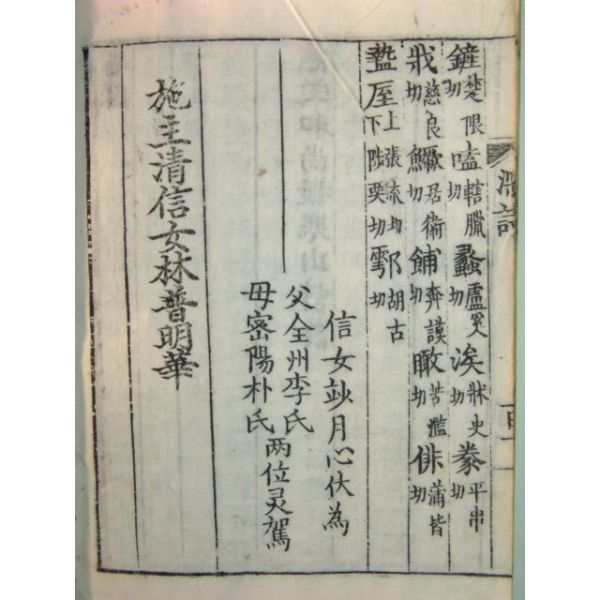 鏟楚限切嗑轄臘切蠡盧奚切涘牀史切豢平串切
戕慈良切鱖居衛切餔奔謨切瞰苦濫切俳蒲皆切
盩厔上張流切下陟栗切鄠胡古切
信女妙月心伏為
父全州李氏
母密陽朴氏
两位灵駕
施主清信女林普明華